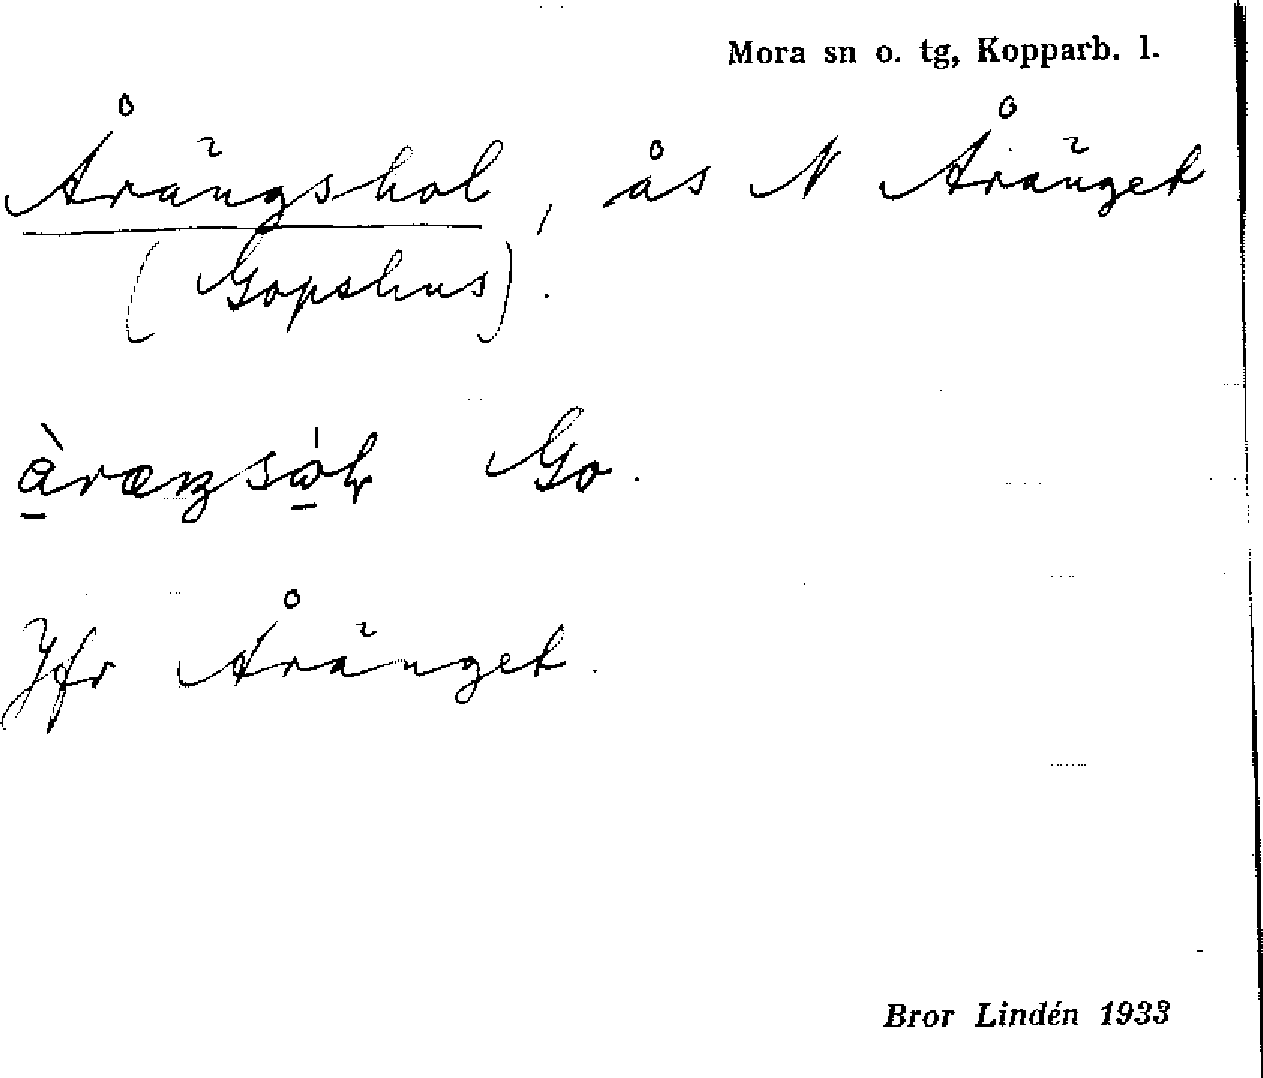 Mora sn o. tg, Kopparb. l.
Årängshol, ås N Åränget
(Gopshus).
Go.
Jfr Åränget.
Bror Lindén 1933